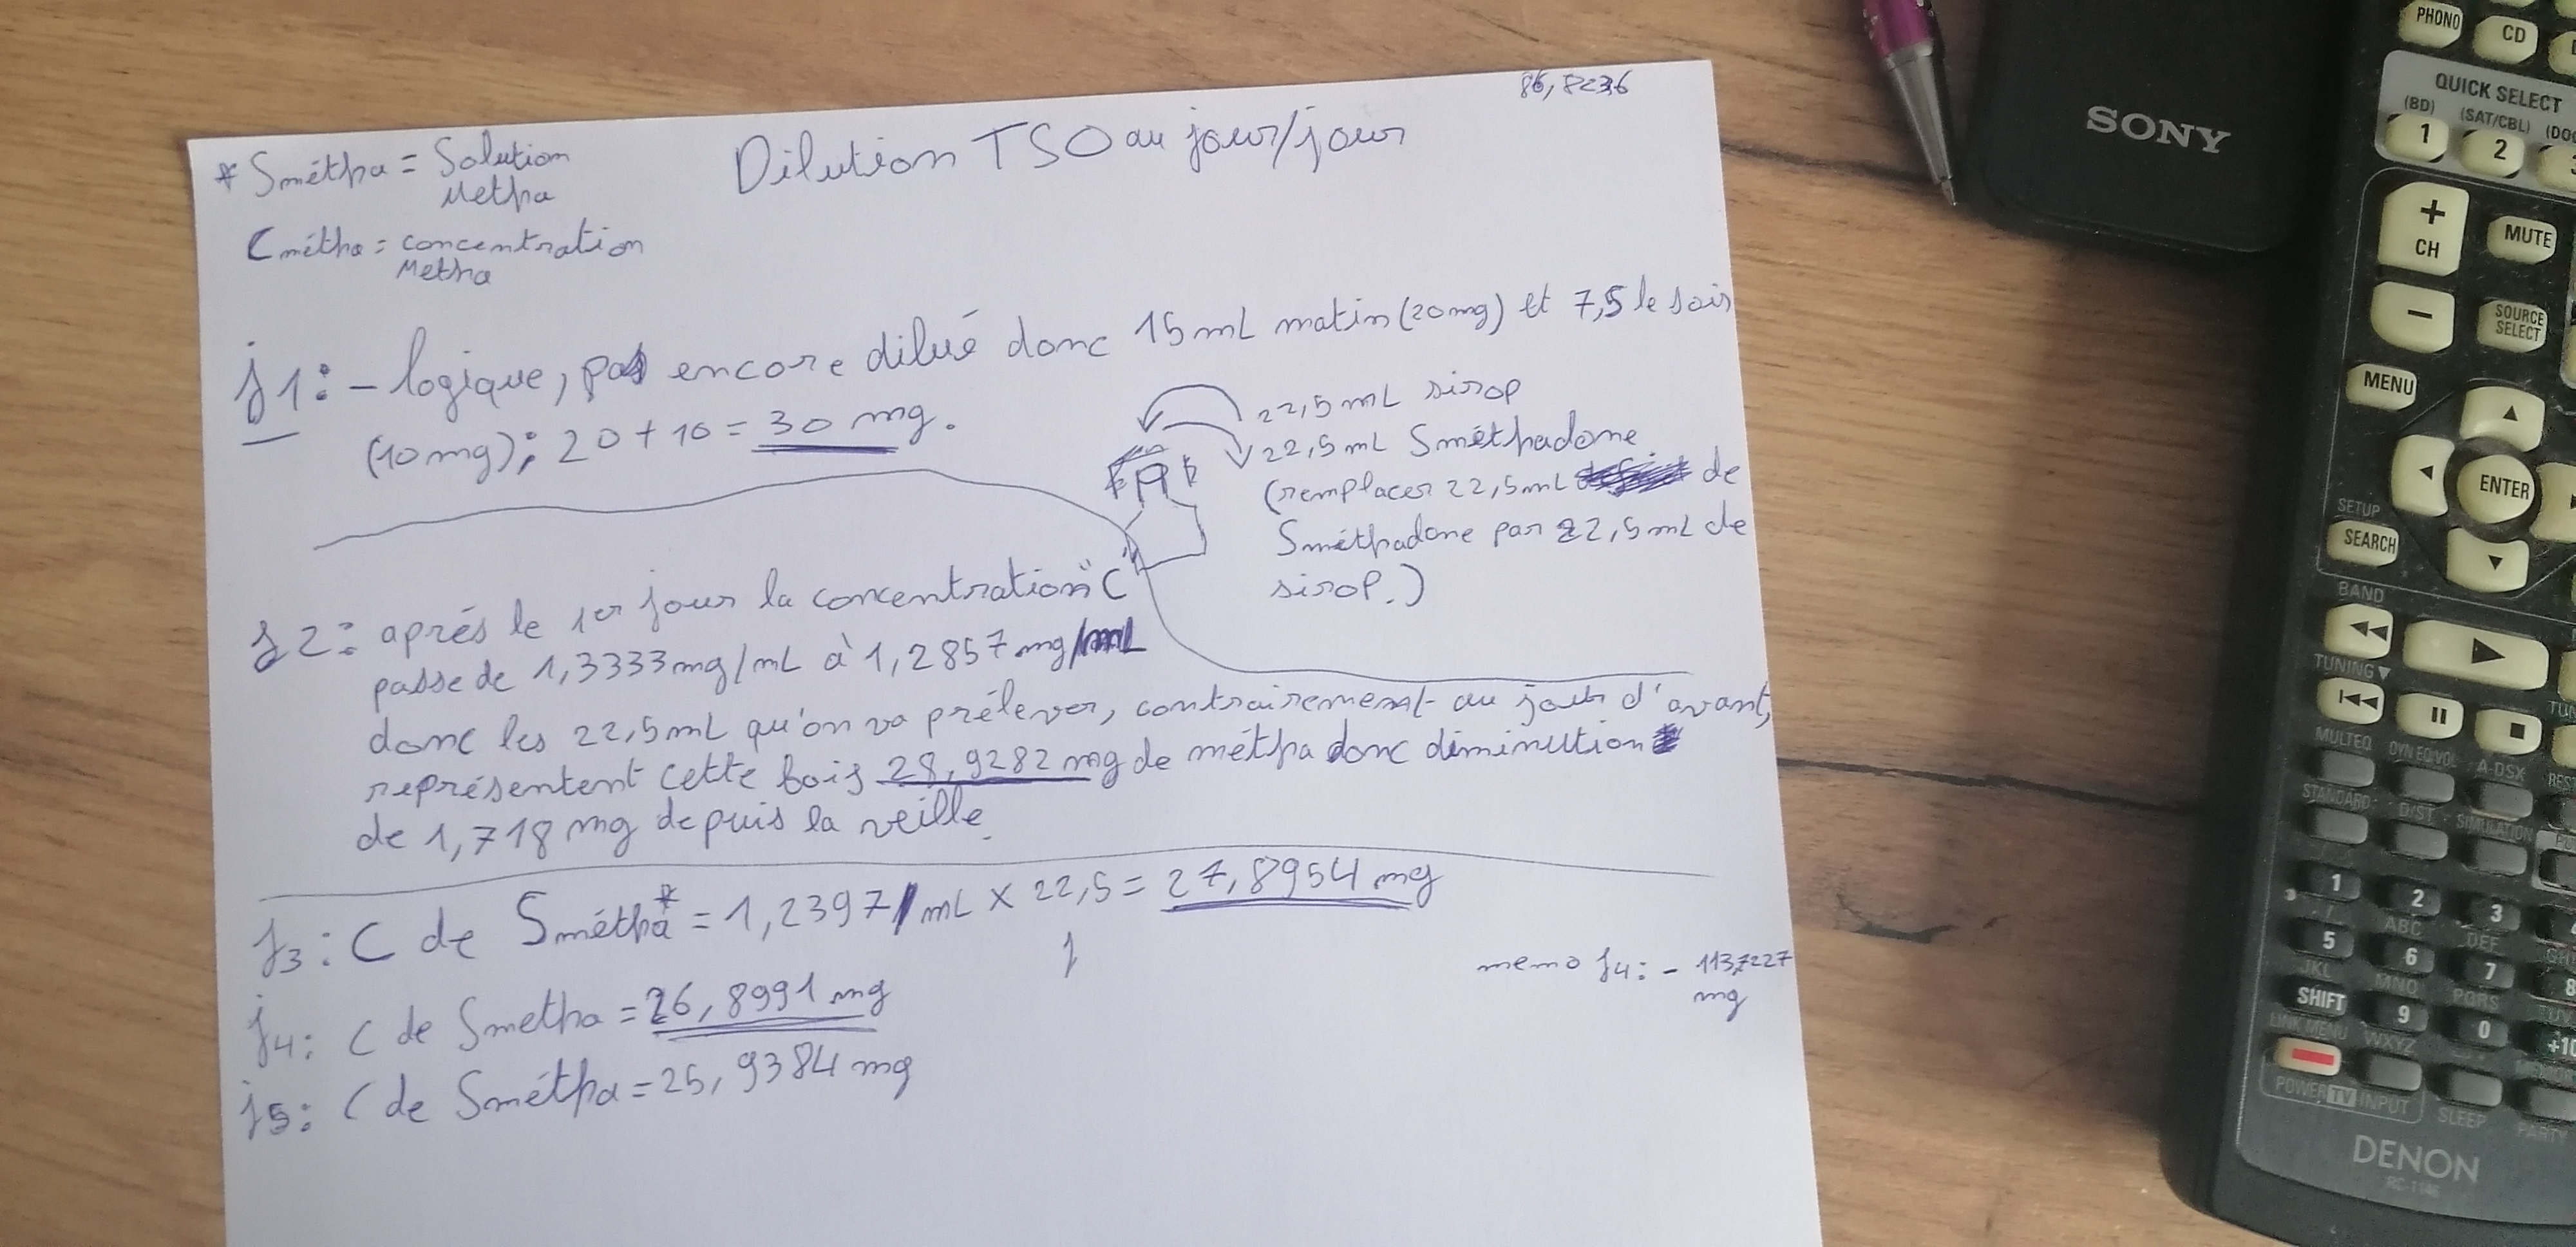 86,8236
Dilution TSO au jour/jour
* Smétha = Solution
Metha
Cmétha = concentration
Metha
j1: - logique, pas encore dilué donc 15 mL matin (20mg) et 7,5 le soir
(10mg); 20 + 10 = 30 mg.
22,5 mL sirop
22,5 mL Sméthadone
(remplacer 22,5mL de
Sméthadone par 22,5 mL de
sirop.)
j2: après le 1er jour la concentration "C"
passe de 1,3333mg/mL à 1,2857 mg/mL
donc les 22,5mL qu'on va prélever, contrairement au jour d'avant,
représentent cette fois 28,9282 mg de métha donc diminution
de 1,718 mg depuis la veille.
j3: C de Smétha* = 1,2397/mL x 22,5 = 27,8954 mg
j
memo j4: - 1137227
mg
j4: C de Smetha = 26,8991 mg
j5: C de Smétha = 25,9384 mg
SONY
PHONO
CD
QUICK SELECT
(BD)
(SAT/CBL)
1
2
+
CH
-
MUTE
SOURCE
SELECT
MENU
ENTER
SETUP
SEARCH
BAND
TUNING
MULTEQ
DYN EQ/VOL
A-DSX
STANDARD
D/ST
SIMULATION
1
2
3
ABC
DEF
5
6
7
JKL
MNO
PQRS
SHIFT
9
0
+10
LINK MENU
WXYZ
POWER TV INPUT
SLEEP
DENON
RC-1146